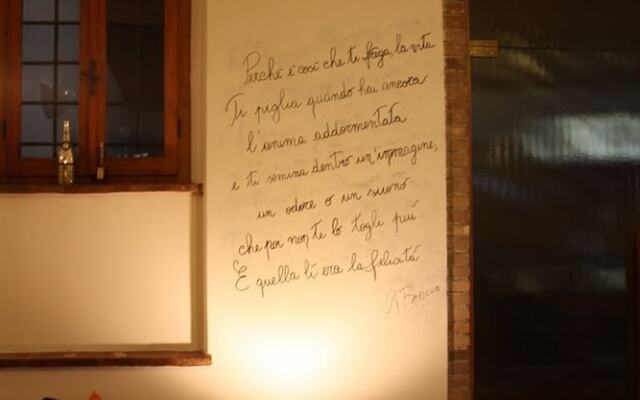 Perchè è così che ti frega, la vita
Ti piglia quando hai ancora
l'anima addormentata
e ti semina dentro un'immagine,
un odore o un suono
che poi non te lo togli più
E quella lì era la felicità
A Baricco